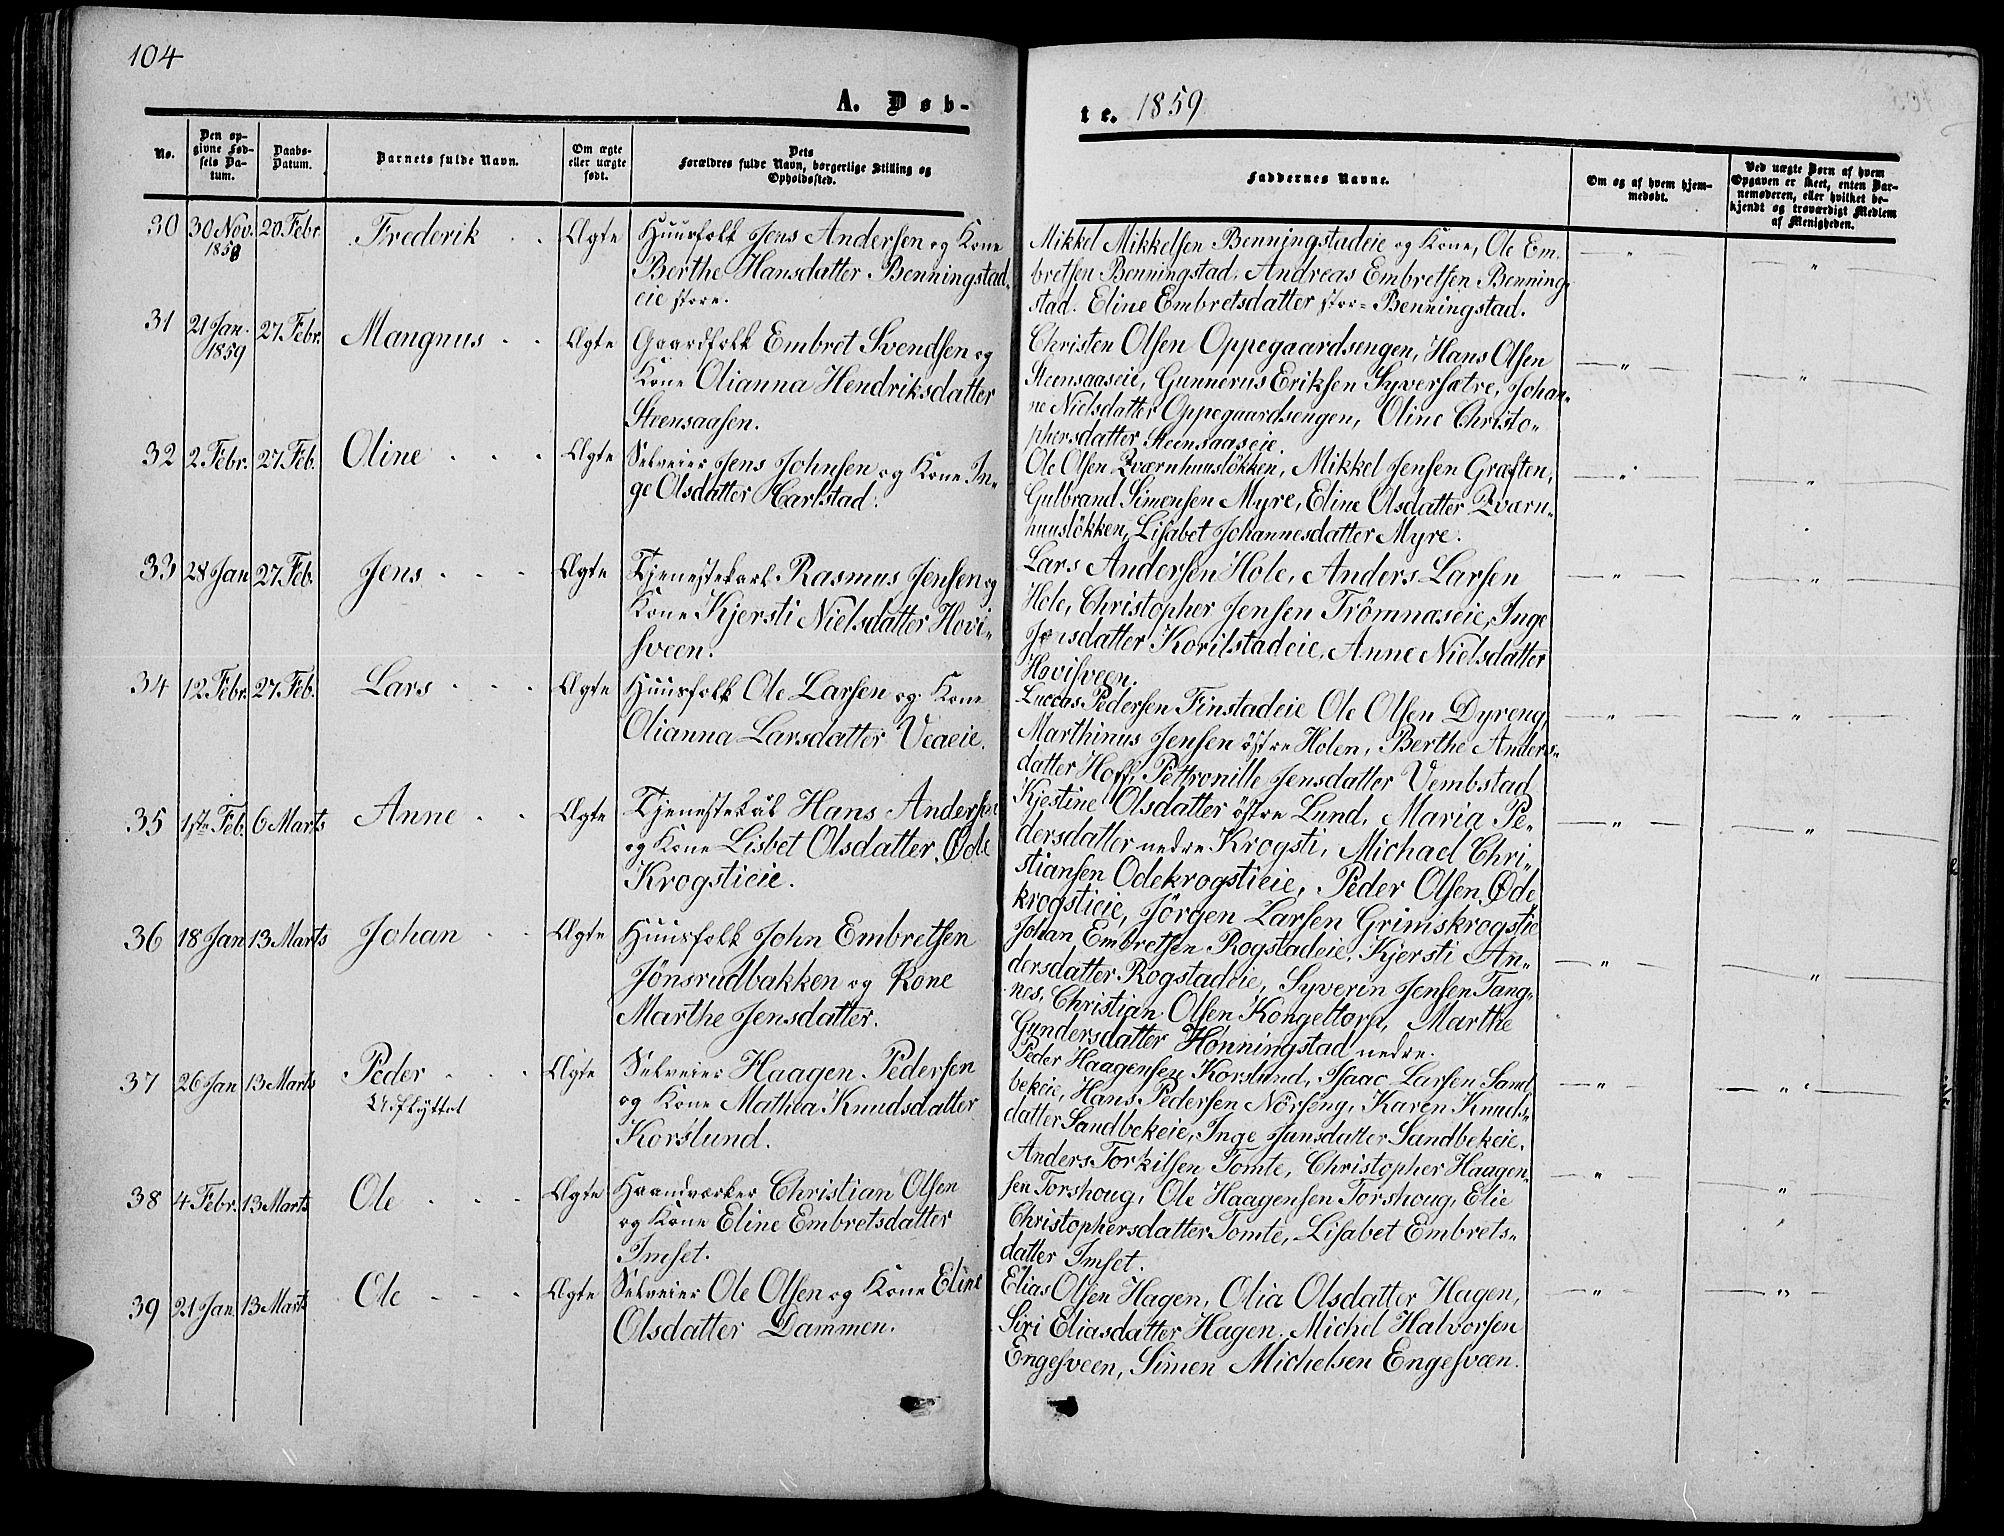 104
A. Døb-
te. 1859
No.
Den op-
givne Fød-
sels Da-
tum.
Daabs-
Datum.
Barnets fulde Navn.
Om ægte
eller uægte
født.
Dets
Forældres fulde Navn, borgerlige Stilling og
Opholdssted.
Faddernes Navne.
Om og af hvem hjem-
medøbt.
Ved uægte Børn af hvem
Opgaven er skeet, enten Bar-
nemoderen, eller hvilket be-
kjendt og troværdigt Medlem
af Menigheden.
30 30 Nov. 20 Febr. Frederik - - Ægte Huusfolk Jens Andersen og Kone
1858
Berthe Hansdatter Benningstad-
eie store.
Mikkel Mikkelsen Benningstadeie og Kone, Ole Em-
bretsen Benningstad, Andreas Embretsen Benning-
stad. Eline Embretsdatter stor=Benningstad.
— " — — " —
31 21 Jan. 27 Febr. Mangnus - - Ægte Gaardfolk Embret Svendsen og
1859
Kone Olianna Hendriksdatter
Steensaasen.
Christen Olsen Oppegaardsengen, Hans Olsen
Steensaaseie, Gunnerus Eriksen Syversætre, Johan-
ne Nielsdatter Oppegaardsengen, Oline Christo-
phersdatter Steensaaseie.
— " — — " —
32 2 Febr. 27 Feb. Oline - - - Ægte Selveier Jens Johnsen og Kone In-
ge Olsdatter Karlstad.
Ole Olsen Qværnhuusløkken, Mikkel Jensen Græsten,
Gulbrand Simensen Myre, Eline Olsdatter Qværn-
huusløkken, Lisabet Johannesdatter Myre.
— " — — " —
33 28 Jan 27 Feb. Jens - - - Ægte Tjenestekarl Rasmus Jensen og
Kone Kjersti Nielsdatter Hovi-
sveen.
Lars Andersen Hole, Anders Larsen
Hole, Christopher Jensen Trömnæseie, Inge
Jensdatter Korilstadeie, Anne Nielsdatter
Hovisveen.
— " — — " —
34 12 Febr. 27 Feb. Lars - - - Ægte Huusfolk Ole Larsen og Kone
Olianna Larsdatter Veaeie.
Luccas Pedersen Finstadeie Ole Olsen Dyreng,
Marthinus Jensen östre Holen, Berthe Anders-
datter Hoff, Pettronille Jensdatter Vembstad
— " — — " —
35 1ste Feb. 6 Marts Anne - - Ægte Tjenestekarl Hans Andersen
og Kone Lisbet Olsdatter Øde
Krogstieie.
Kjestine Olsdatter östre Lund, Maria Pe-
dersdatter nedre Krogsti, Michael Chri-
stiansen Odekrogstieie, Peder Olsen Øde
krogstieie, Jörgen Larsen Grimskrogstie
— " — — " —
36 18 Jan 13 Marts Johan - - Ægte Huusfolk John Embretsen
Jönsrudbakken og Kone
Marthe Jensdatter.
Johan Embretsen Rogstadeie, Kjersti An-
dersdatter Rogstadeie, Syverin Jensen Tang-
nes, Christian Olsen Kongeltorp, Marthe
Gundersdatter Hönningstad nedre.
— " — — " —
37 26 Jan 13 Marts Peder - - - Ægte Selveier Haagen Pedersen
Udflyttet
og Kone Mathea Knudsdatter
Korslund.
Peder Haagensen Korslund, Isaac Larsen Sand
bekeie, Hans Pedersen Nörseng, Karen Knuds-
datter Sandbekeie, Inge Jansdatter Sandbekeie.
— " — — " —
38 4 Febr. 13 Marts Ole - - - Ægte Haandværker Christian Olsen
og Kone Eline Embretsdatter
Imset.
Anders Torkilsen Tomte, Christopher Haagen-
sen Torshoug, Ole Haagensen Torshoug, Elie
Christophersdatter Tomte, Lisabet Embrets-
datter Imset.
— " — — " —
39 21 Jan 13 Marts Ole - - - Ægte Selveier Ole Olsen og Kone Eline
Olsdatter Dammen.
Elias Olsen Hagen, Olia Olsdatter Hagen,
Siri Eliasdatter Hagen. Michel Halvorsen
Engesveen, Simen Michelsen Engesvæn.
— " — — " —